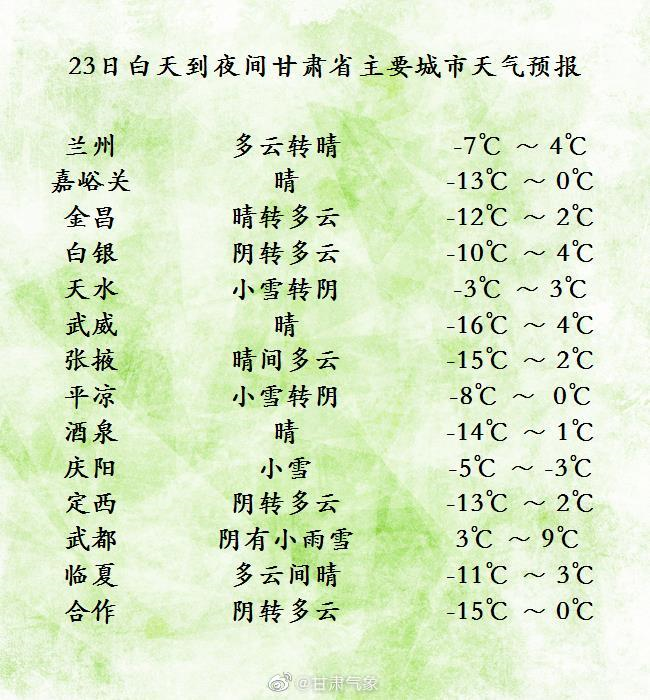 23日白天到夜间甘肃省主要城市天气预报
兰州 多云转晴 -7℃ ～ 4℃
嘉峪关 晴 -13℃ ～ 0℃
金昌 晴转多云 -12℃ ～ 2℃
白银 阴转多云 -10℃ ～ 4℃
天水 小雪转阴 -3℃ ～ 3℃
武威 晴 -16℃ ～ 4℃
张掖 晴间多云 -15℃ ～ 2℃
平凉 小雪转阴 -8℃ ～ 0℃
酒泉 晴 -14℃ ～ 1℃
庆阳 小雪 -5℃ ～ -3℃
定西 阴转多云 -13℃ ～ 2℃
武都 阴有小雨雪 3℃ ～ 9℃
临夏 多云间晴 -11℃ ～ 3℃
合作 阴转多云 -15℃ ～ 0℃
@甘肃气象